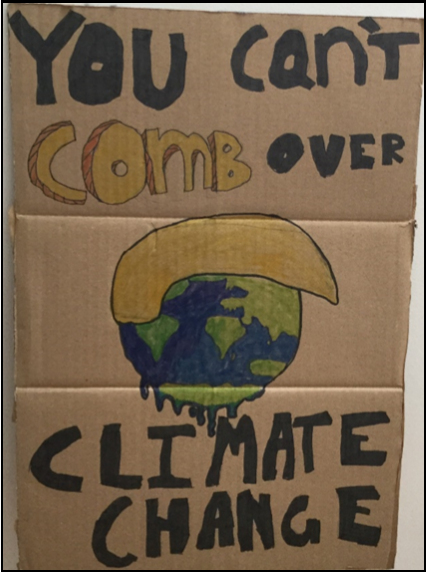 YOU can't
comB OVER
CLIMATE
CHANGE